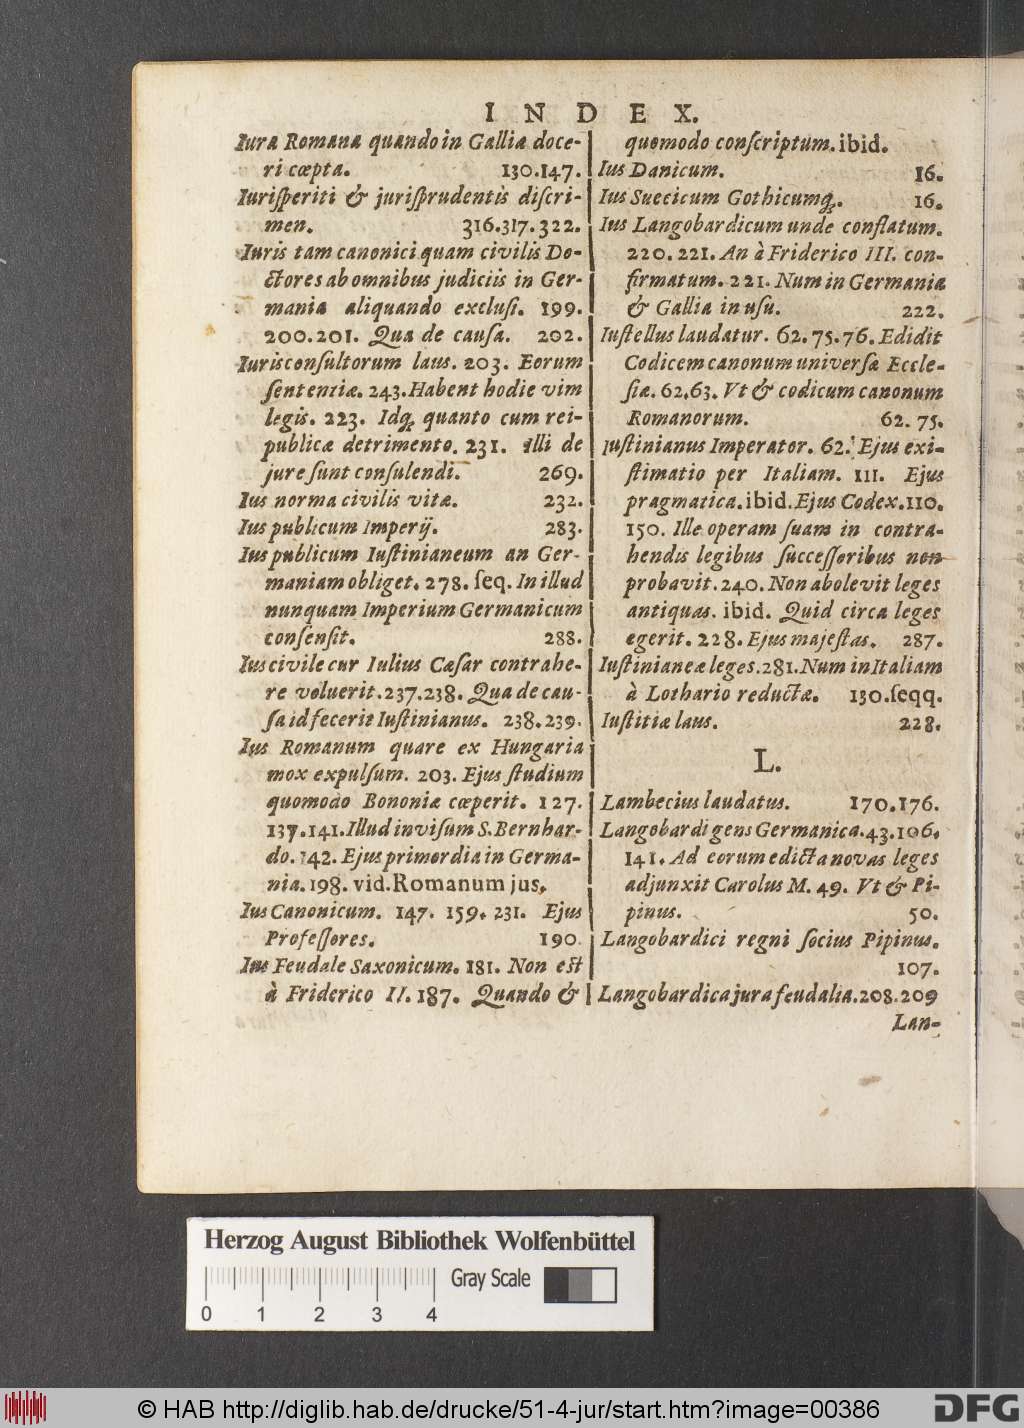 INDEX.
Iura Romana quando in Gallia doce-
ri cœpta. 130.147.
Iurisperiti & jurisprudentis discri-
men. 316.317.322.
Iuris tam canonici quam civilis Do-
ctores ab omnibus judiciis in Ger-
mania aliquando exclusi. 199.
200.201. Qua de causa. 202.
Iurisconsultorum laus. 203. Eorum
sententiæ. 243. Habent hodie vim
legis. 223. Idq; quanto cum rei-
publicæ detrimento. 231. Illi de
jure sunt consulendi. 269.
Ius norma civilis vitæ. 232.
Ius publicum Imperij. 283.
Ius publicum Iustinianeum an Ger-
maniam obliget. 278. seq. In illud
nunquam Imperium Germanicum
consensit. 288.
Ius civile cur Iulius Cæsar contrahe-
re voluerit. 237.238. Qua de cau-
sa id fecerit Iustinianus. 238.239.
Ius Romanum quare ex Hungaria
mox expulsum. 203. Ejus studium
quomodo Bononiæ cœperit. 127.
137.141. Illud invisum S. Bernhar-
do. 142. Ejus primordia in Germa-
nia. 198. vid. Romanum jus.
Ius Canonicum. 147. 159. 231. Ejus
Professores. 190.
Ius Feudale Saxonicum. 181. Non est
à Friderico II. 187. Quando &
quomodo conscriptum. ibid.
Ius Danicum. 16.
Ius Suecicum Gothicumq;. 16.
Ius Langobardicum unde conflatum.
220. 221. An à Friderico III. con-
firmatum. 221. Num in Germania
& Gallia in usu. 222.
Iustellus laudatur. 62. 75. 76. Edidit
Codicem canonum universæ Eccle-
siæ. 62.63. Vt & codicum canonum
Romanorum. 62. 75.
Iustinianus Imperator. 62. Ejus exi-
stimatio per Italiam. 111. Ejus
pragmatica. ibid. Ejus Codex. 110.
150. Ille operam suam in contra-
hendis legibus successoribus non
probavit. 240. Non abolevit leges
antiquas. ibid. Quid circa leges
egerit. 228. Ejus majestas. 287.
Iustinianeæ leges. 281. Num in Italiam
à Lothario reductæ. 130. seqq.
Iustitiæ laus. 228.
L.
Lambecius laudatus. 170.176.
Langobardi gens Germanica. 43.106.
141. Ad eorum edicta novas leges
adjunxit Carolus M. 49. Vt & Pi-
pinus. 50.
Langobardici regni socius Pipinus.
107.
Langobardica jura feudalia. 208.209
Lan-
Herzog August Bibliothek Wolfenbüttel
Gray Scale
0 1 2 3 4
© HAB http://diglib.hab.de/drucke/51-4-jur/start.htm?image=00386
DFG